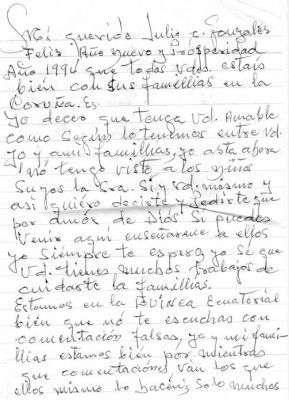 Mi querido Julio c. Gonzales
Felis Año nuevo y Prosperidad
Año 1994 que todos Vdes. estais
bien con sus famillias en la
Coruña. Es.
yo deceo que tenga Vd. Amable
como Seguro lo tenemos entre Vd.
yo y ami famillias, yo asta ahora
no tengo visto a los niños
Suyos la Sra. Si y Vd. mismo y
asi quiero deciste y Pediste que
por amor de Dios Si puedes
Venir aqui enseñarme a ellos
yo siempre te espero, yo sé que
Vd. tienes muchos trabajos de
cuidarte la famillias.
Estamos en la Guinea Ecuatorial
bien que no te escuchas con
comentación falsas, yo y mi fami-
llias estamos bien por mientras
que comentaciones van los que
ellos mismo lo hacen, solo muchos